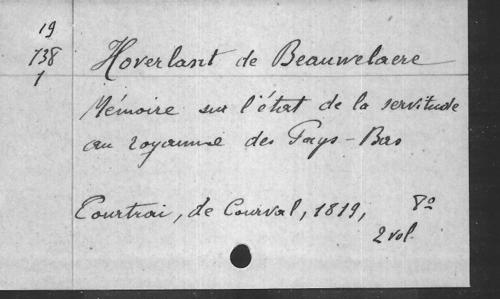 19
738
1
Hoverlant de Beauwelaere
Mémoire sur l'état de la servitude
au royaume des Pays-Bas
Courtrai, de Courval, 1819, 8º
2 vol.